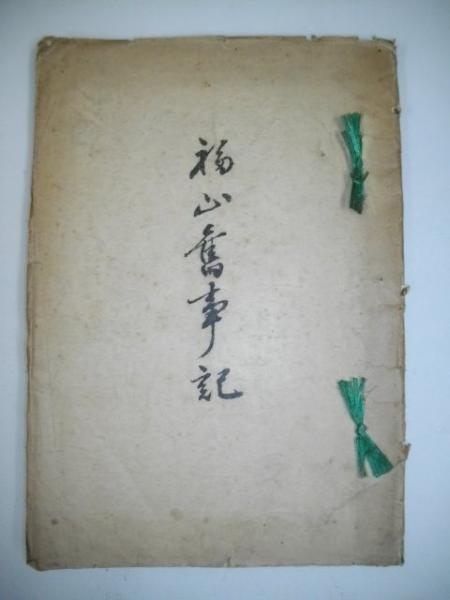 福山舊事記